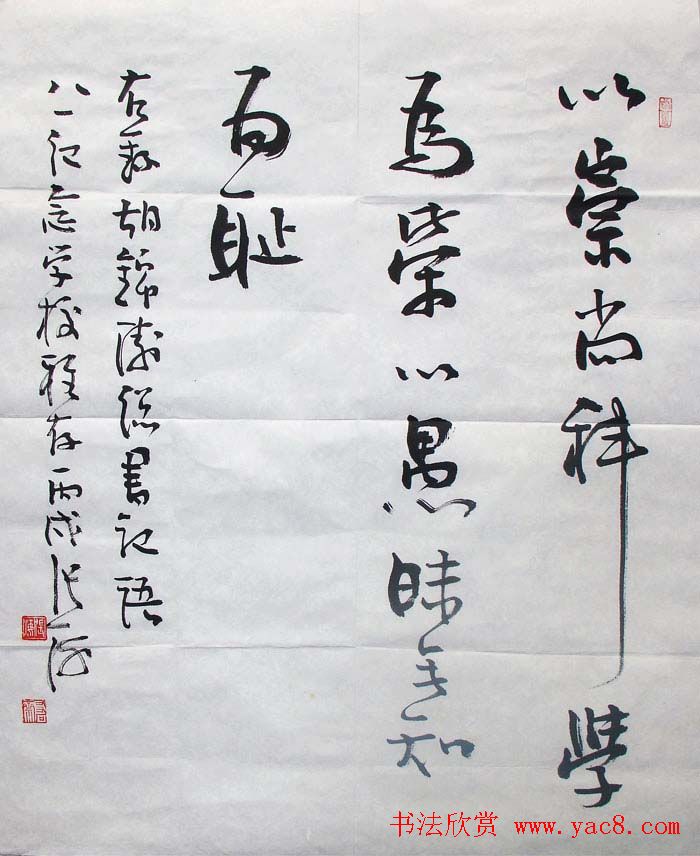 以崇尚科學
為榮以愚昧無知
為耻
右胡錦濤總書記語
八一記念学校雅存丙戌张
书法欣赏 www.yac8.com